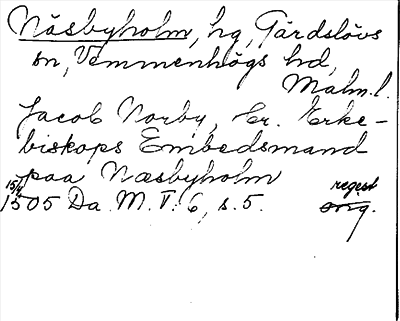 Näsbyholm, hg, Gärdslövs
sn, Vemmenhögs hd,
Malm. l.
Jacob Norby, Er. Erke-
biskops Embedsmand
paa Næsbyholm
regest
15/4
1505 Da. M. V. 6, s. 5. orig.